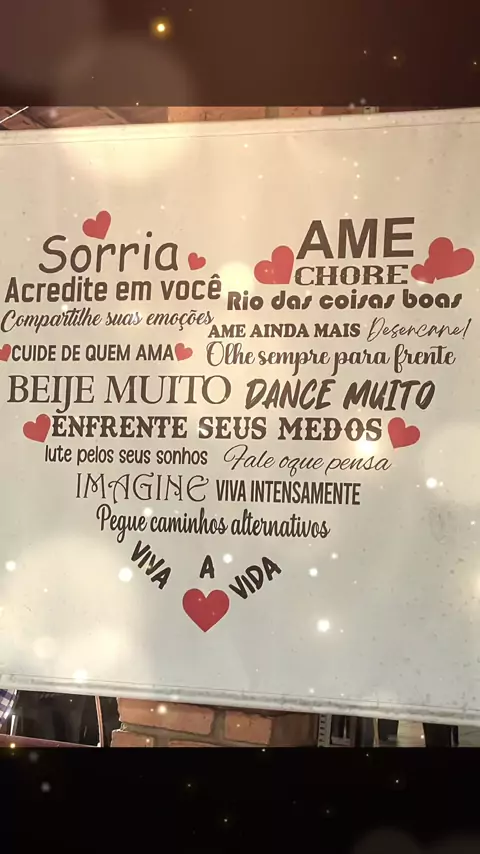 Sorria
AME
CHORE
Acredite em você
Rio das coisas boas
Compartilhe suas emoções
AME AINDA MAIS Desencane!
CUIDE DE QUEM AMA
Olhe sempre para frente
BEIJE MUITO DANCE MUITO
ENFRENTE SEUS MEDOS
lute pelos seus sonhos Fale oque pensa
IMAGINE VIVA INTENSAMENTE
Pegue caminhos alternativos
VIVA A VIDA